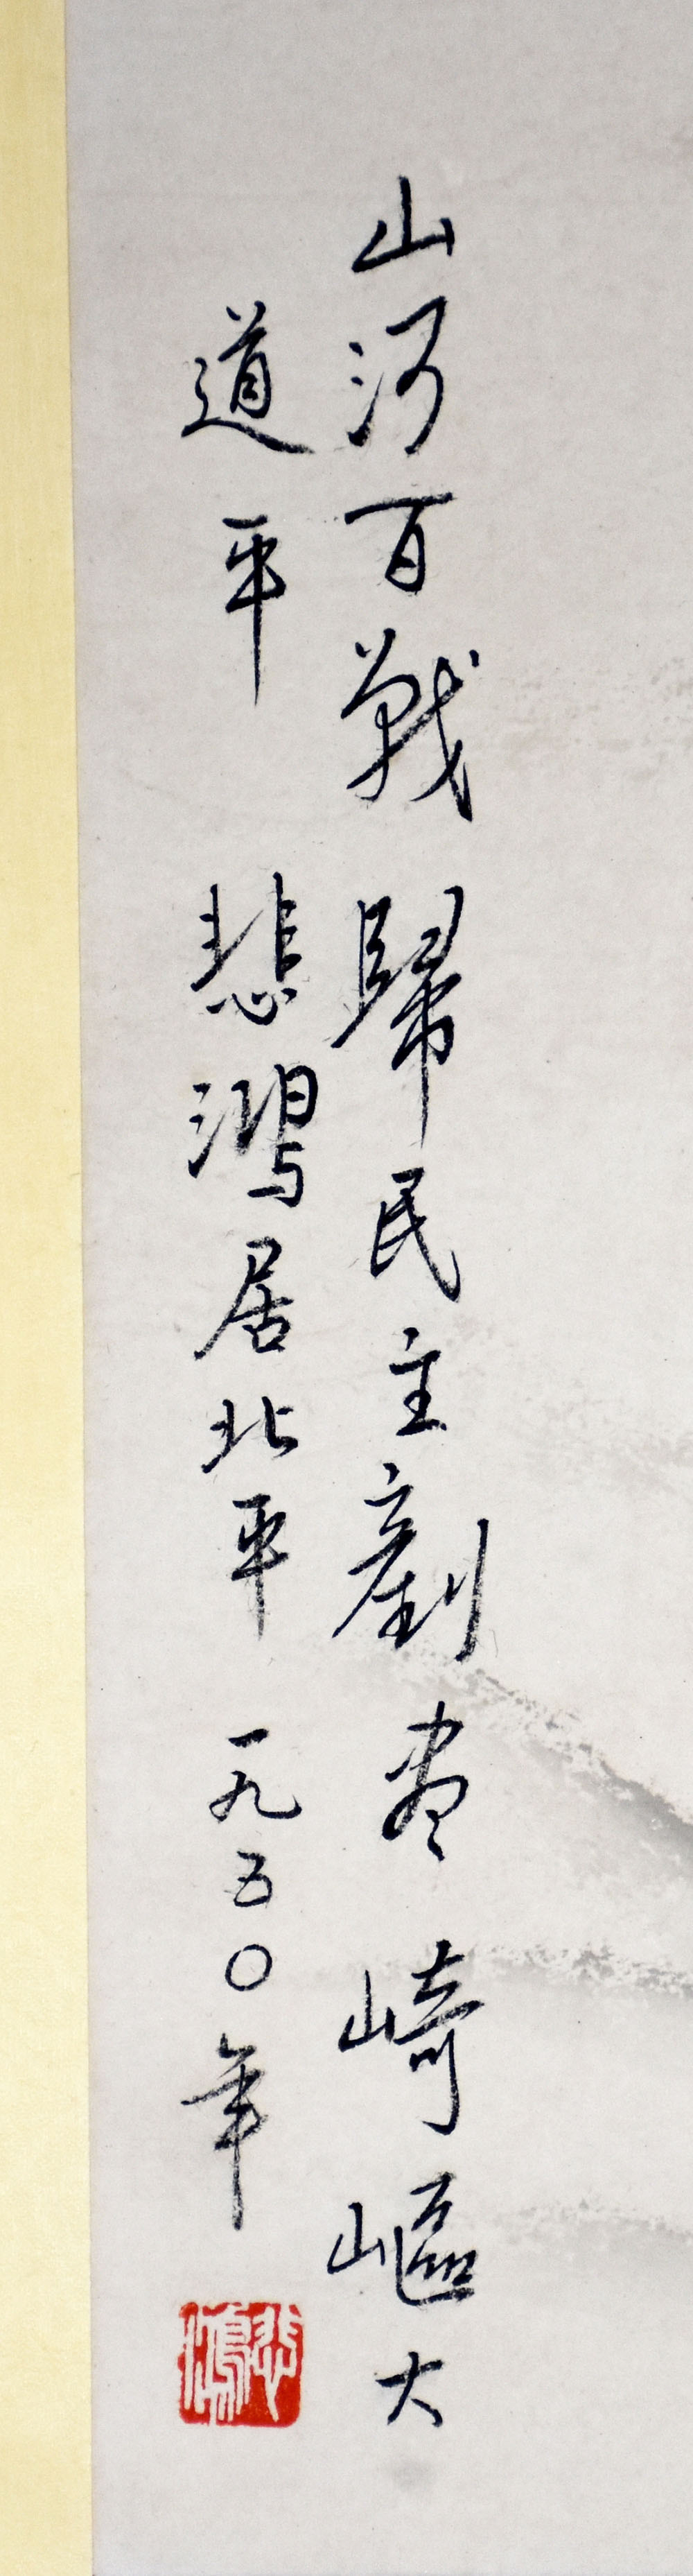 山河百戰歸民主剷盡崎嶇大
道平 悲鴻居北平 一九五〇年
悲鴻